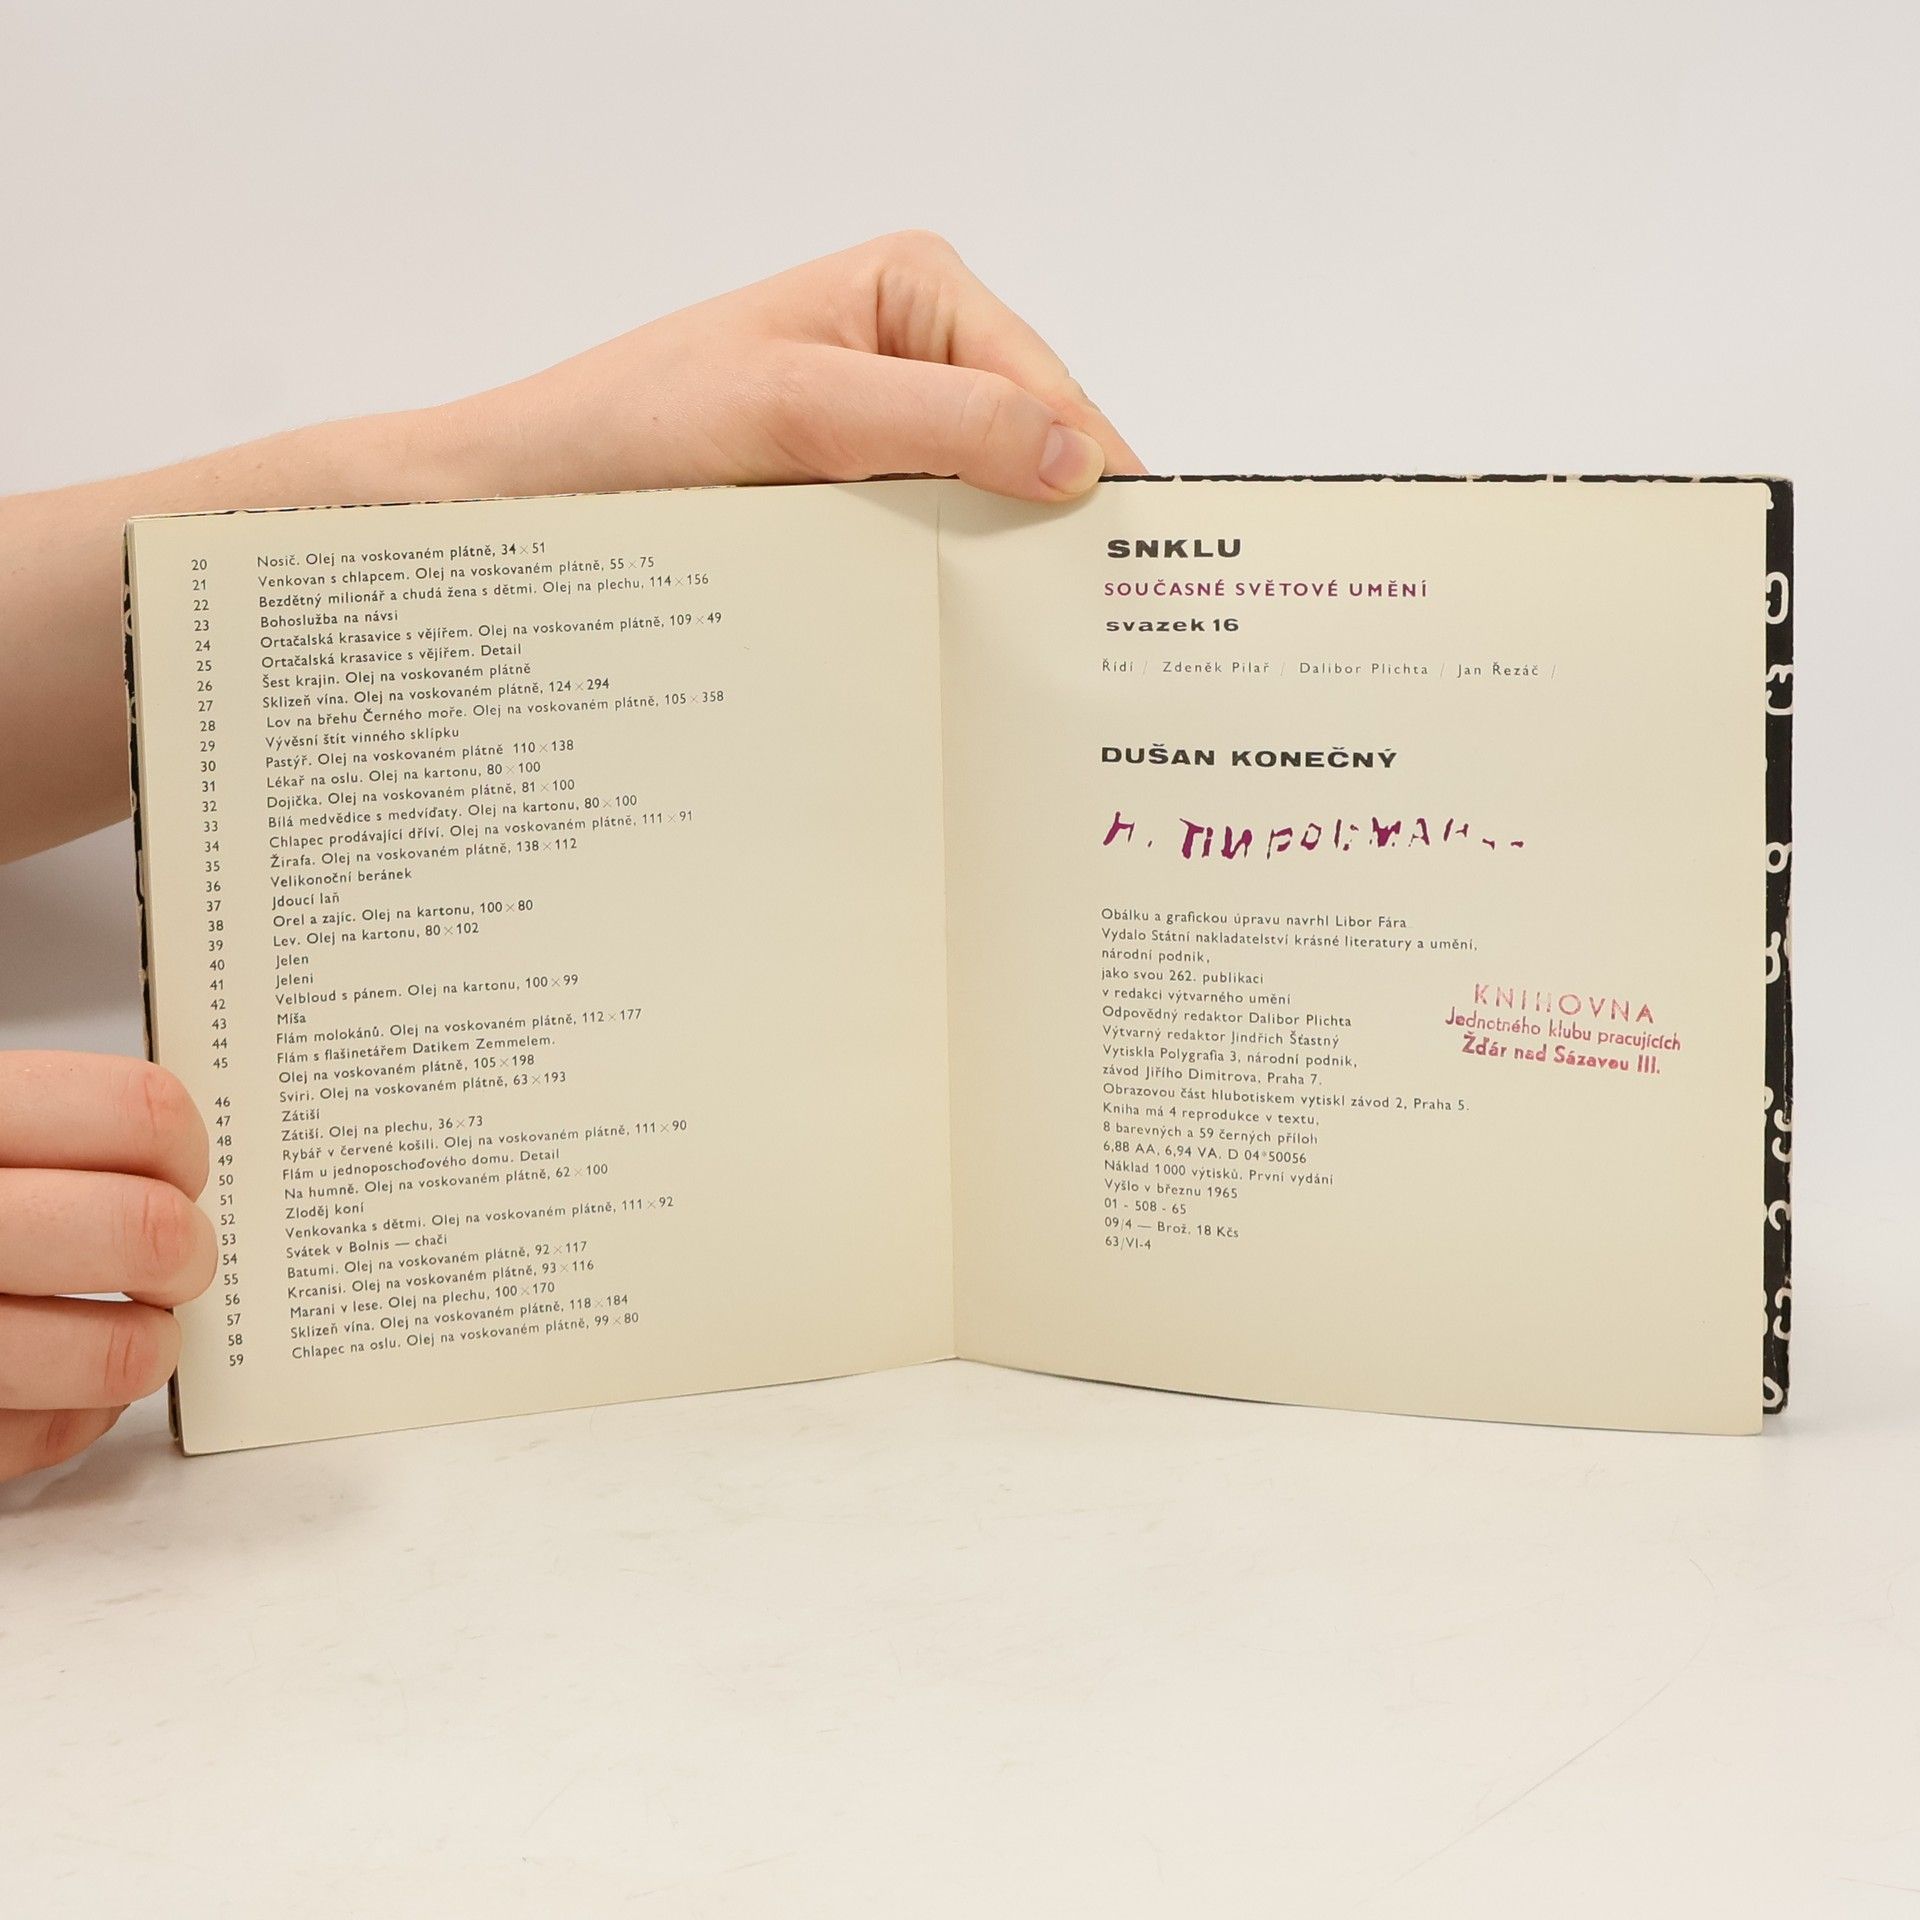 20 Nosič. Olej na voskovaném plátně, 34×51
21 Venkovan s chlapcem. Olej na voskovaném plátně, 55×75
22 Bezdětný milionář a chudá žena s dětmi. Olej na plechu, 114×156
23 Bohoslužba na návsi
24 Ortačalská krasavice s vějířem. Olej na voskovaném plátně, 109×49
25 Ortačalská krasavice s vějířem. Detail
26 Šest krajin. Olej na voskovaném plátně
27 Sklizeň vína. Olej na voskovaném plátně, 124×294
28 Lov na břehu Černého moře. Olej na voskovaném plátně, 105×358
29 Vývěsní štít vinného sklípku
30 Pastýř. Olej na voskovaném plátně 110×138
31 Lékař na oslu. Olej na kartonu, 80×100
32 Dojička. Olej na voskovaném plátně, 81×100
33 Bílá medvědice s medvíďaty. Olej na kartonu, 80×100
34 Chlapec prodávající dříví. Olej na voskovaném plátně, 111×91
35 Žirafa. Olej na voskovaném plátně, 138×112
36 Velikonoční beránek
37 Jdoucí laň
38 Orel a zajíc. Olej na kartonu, 100×80
39 Lev. Olej na kartonu, 80×102
40 Jelen
41 Jeleni
42 Velbloud s pánem. Olej na kartonu, 100×99
43 Míša
44 Flám molokánů. Olej na voskovaném plátně, 112×177
45 Flám s flašinetářem Datikem Zemmelem.
Olej na voskovaném plátně, 105×198
46 Sviri. Olej na voskovaném plátně, 63×193
47 Zátiší
48 Zátiší. Olej na plechu, 36×73
49 Rybář v červené košili. Olej na voskovaném plátně, 111×90
50 Flám u jednoposchoďového domu. Detail
51 Na humně. Olej na voskovaném plátně, 62×100
52 Zloděj koní
53 Venkovanka s dětmi. Olej na voskovaném plátně, 111×92
54 Svátek v Bolnis — chači
55 Batumi. Olej na voskovaném plátně, 92×117
56 Krcanisi. Olej na voskovaném plátně, 93×116
57 Marani v lese. Olej na plechu, 100×170
58 Sklizeň vína. Olej na voskovaném plátně, 118×184
59 Chlapec na oslu. Olej na voskovaném plátně, 99×80
SNKLU
SOUČASNÉ SVĚTOVÉ UMĚNÍ
svazek 16
Řídí / Zdeněk Pilař / Dalibor Plichta / Jan Řezáč /
DUŠAN KONEČNÝ
Obálku a grafickou úpravu navrhl Libor Fára
Vydalo Státní nakladatelství krásné literatury a umění,
národní podnik,
jako svou 262. publikaci
v redakci výtvarného umění
Odpovědný redaktor Dalibor Plichta
Výtvarný redaktor Jindřich Šťastný
Vytiskla Polygrafia 3, národní podnik,
závod Jiřího Dimitrova, Praha 7.
Obrazovou část hlubotiskem vytiskl závod 2, Praha 5.
Kniha má 4 reprodukce v textu,
8 barevných a 59 černých příloh
6,88 AA, 6,94 VA. D 04*50056
Náklad 1000 výtisků. První vydání
Vyšlo v březnu 1965
01 - 508 - 65
09/4 — Brož. 18 Kčs
63/VI-4
KNIHOVNA
Jednotného klubu pracujících
Žďár nad Sázavou III.